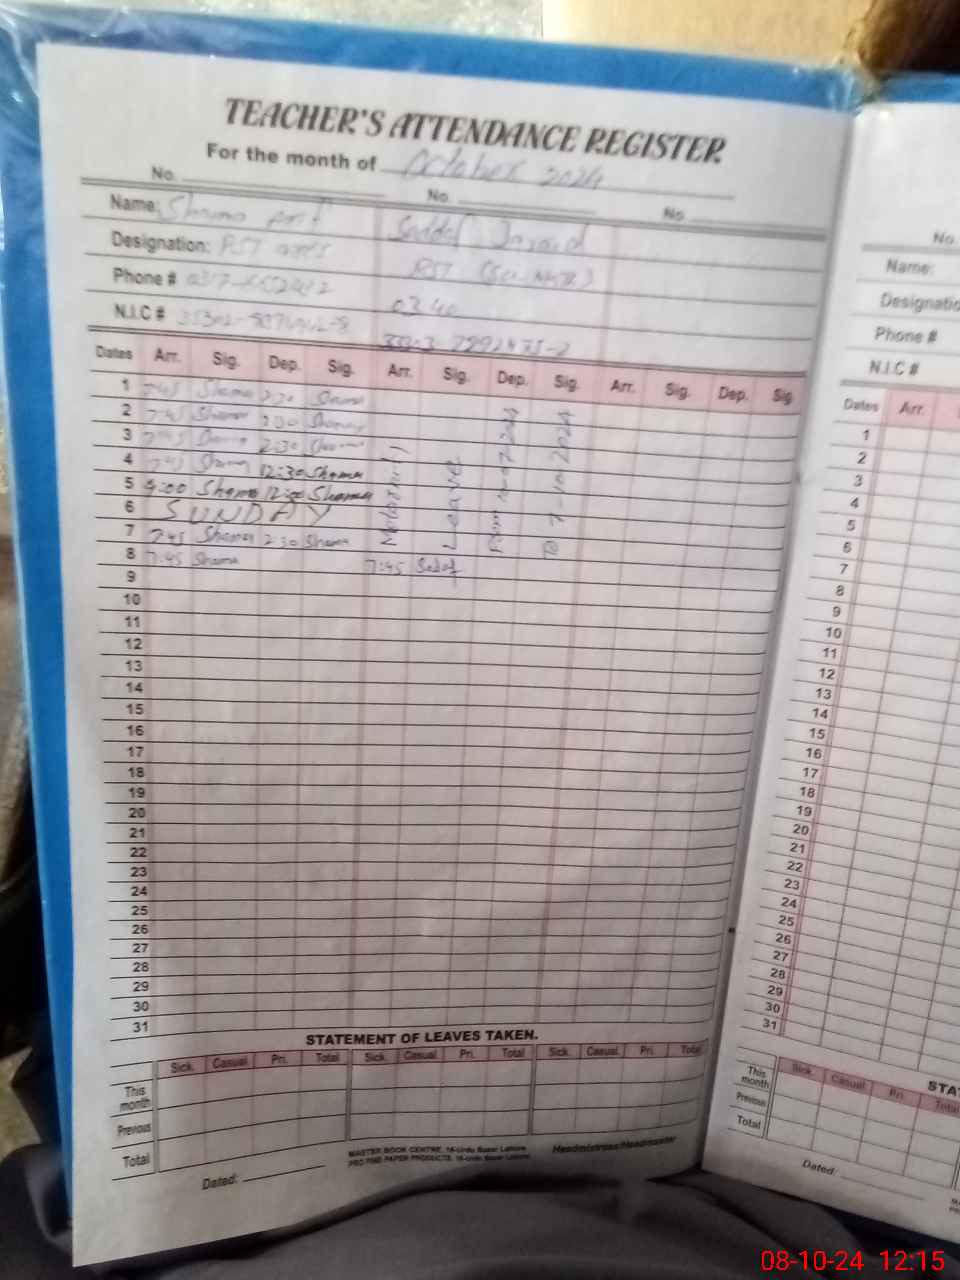 TEACHER'S ATTENDANCE REGISTER
For the month of October 2024
No. No. No.
Name: Shama Sadaf Javaid
Designation: PST PST
Phone # 0340
N.I.C #
Dates Arr. Sig. Dep. Sig. Arr. Sig. Dep. Sig. Arr. Sig. Dep. Sig.
1 7:45 Shama 2:30 Shama
2 7:45 Shama 2:30 Shama
3 7:45 Shama 2:30 Shama
4 7:45 Shama 12:30 Shama
5 9:00 Shama 12:00 Shama
6 SUNDAY
7 7:45 Shama 2:30 Shama
8 7:45 Shama 7:45 Sadaf
Maternity
Leave
From 2024
To 7-10-2024
9
10
11
12
13
14
15
16
17
18
19
20
21
22
23
24
25
26
27
28
29
30
31
STATEMENT OF LEAVES TAKEN.
Sick. Casual. Pri. Total Sick. Casual. Pri. Total Sick. Casual. Pri. Total
This month
Previous
Total
Dated:
MASTER BOOK CENTRE, 16-Urdu Bazar Lahore
PRO FINE PAPER PRODUCTS, 16-Urdu Bazar Lahore
Headmistress/Headmaster
No.
Name:
Designatio
Phone #
N.I.C #
Dates Arr.
1
2
3
4
5
6
7
8
9
10
11
12
13
14
15
16
17
18
19
20
21
22
23
24
25
26
27
28
29
30
31
STA
Sick. Casual. Pri. Total
This month
Previous
Total
Dated:
08-10-24 12:15